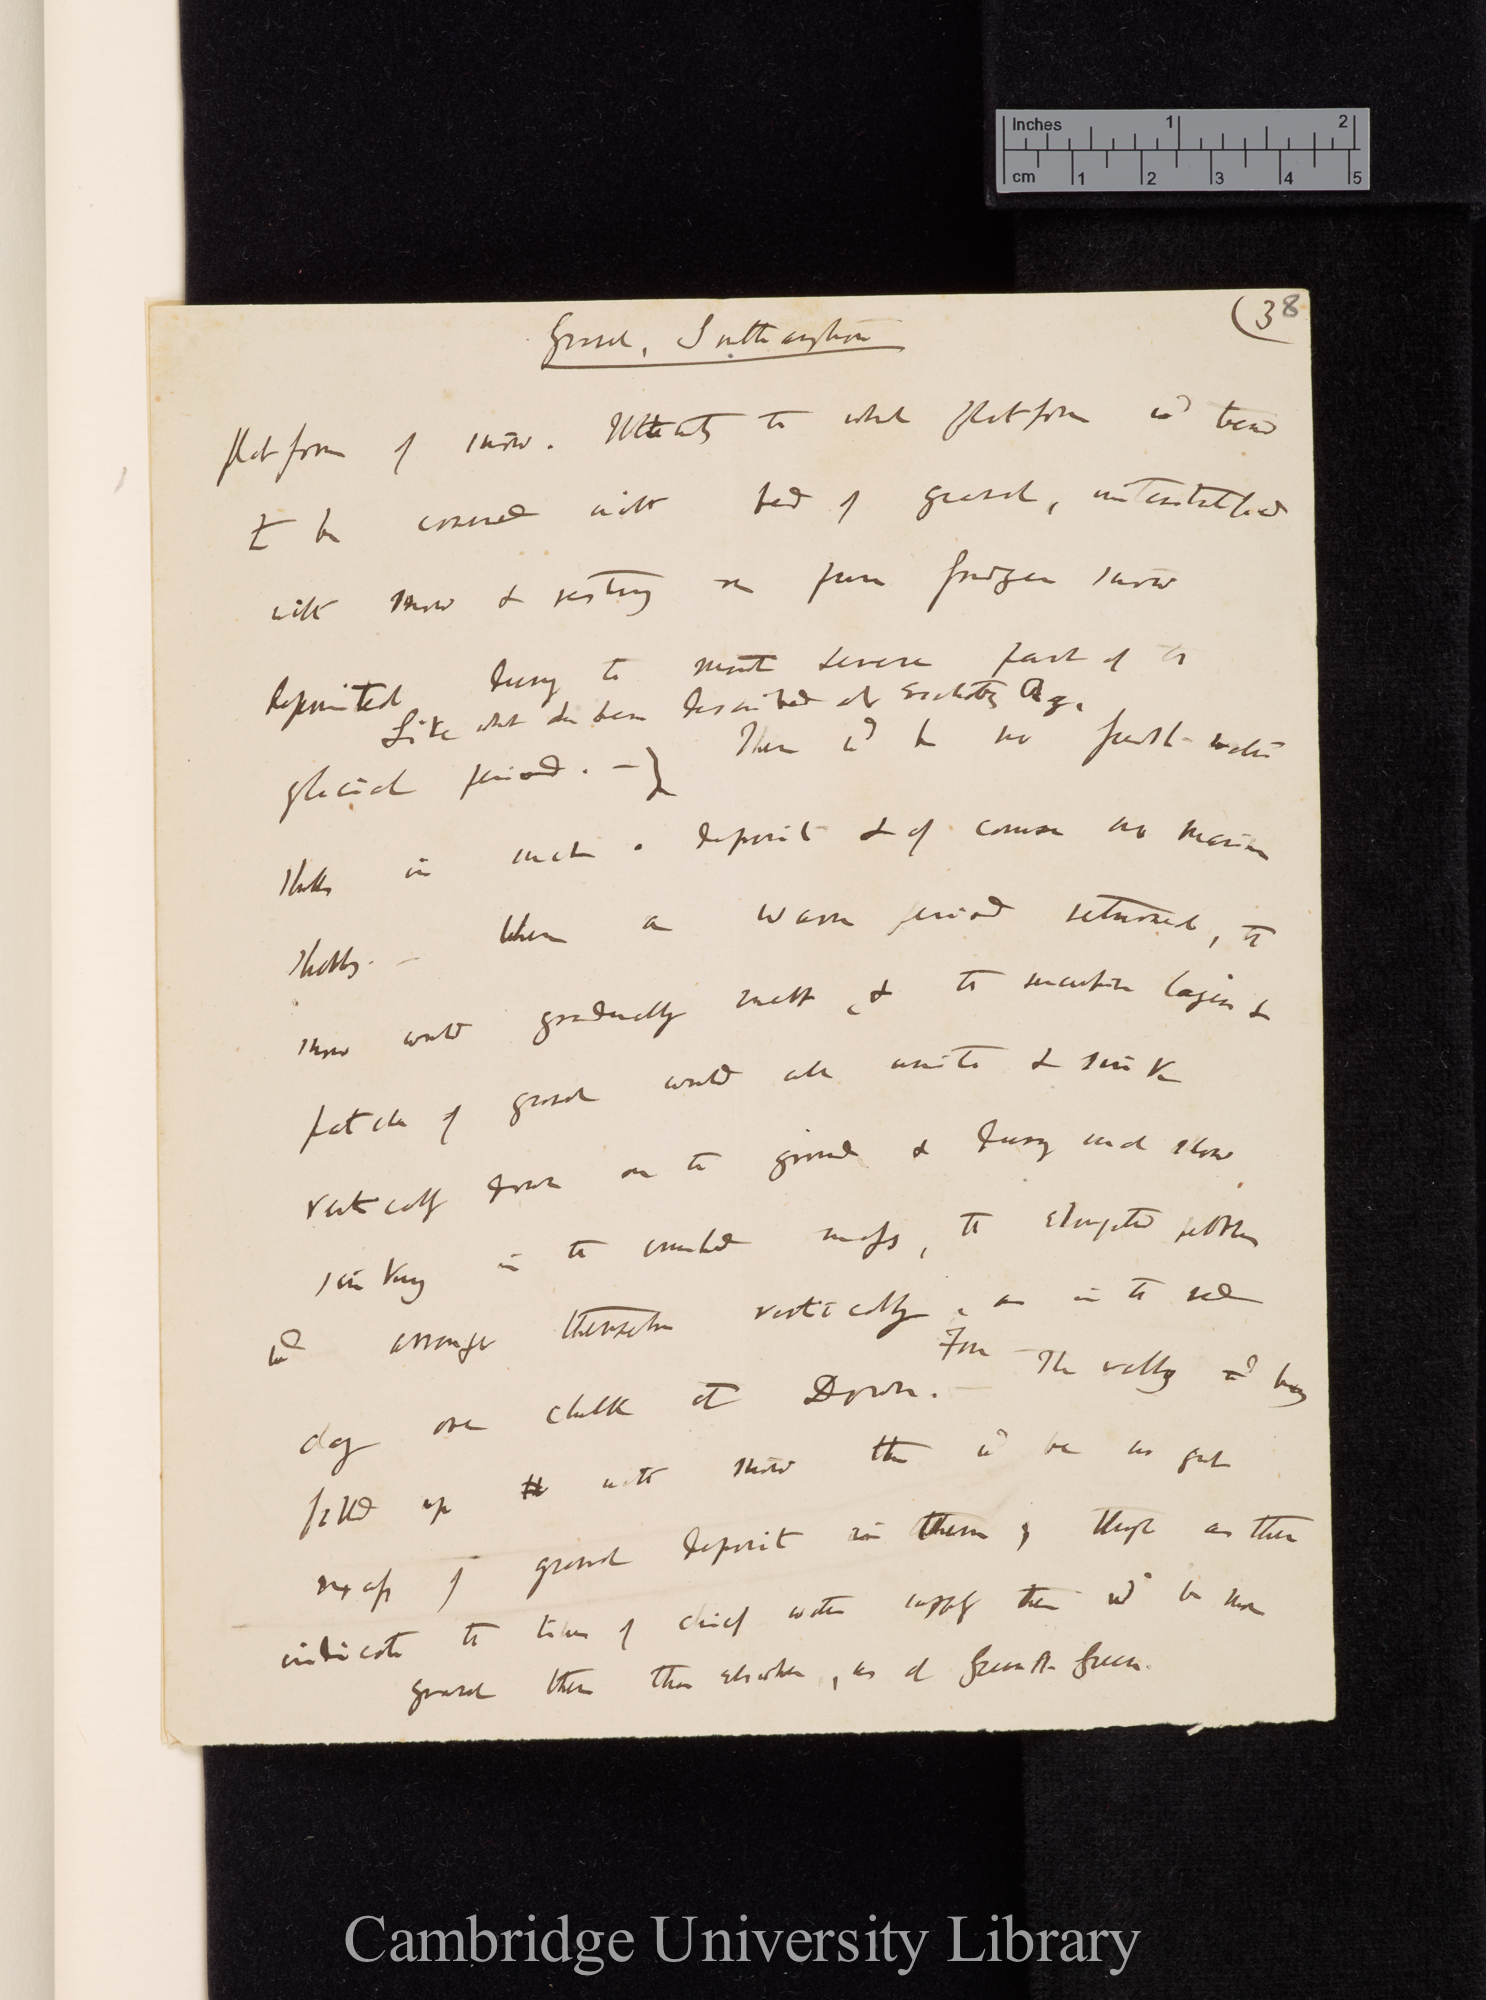 Inches 1 2
cm 1 2 3 4 5
(38
Gravel, Southampton
platform of snow. Ultimately the whole platform wd tend
to be covered with bed of gravel, interstratified
with snow & resting on pure frozen snow
deposited during the most severe part of the
Like what has been described at Eschscholtz Bay.
glacial period. —} There wd be no fresh-water
shells in such a deposit & of course no marine
shells. — When a warm period returned, the
snow would gradually melt, & the successive layers &
patches of gravel would all unite & sink
vertically down on the ground & during such slow
sinking in the crumbled mass, the elongated pebbles
wd arrange themselves vertically, as in the red
clay over chalk at Down. — The valleys wd being
filled up with snow there wd be no great
mass of gravel deposit in them; though as these
indicate the lines of chief water supply there wd be more
gravel there than elsewhere, as at Green St. Green.
Cambridge University Library